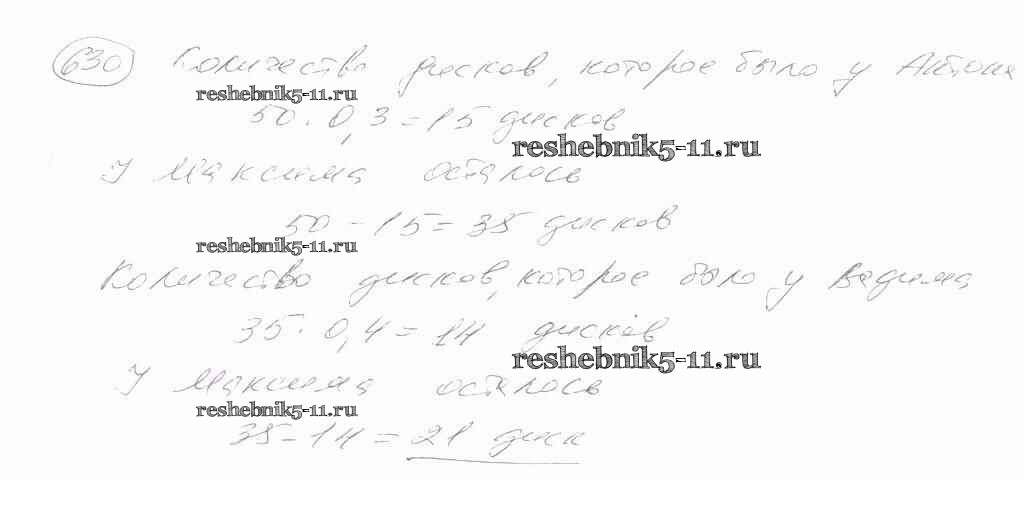 630 Количество дисков, которое было у Антона
reshebnik5-11.ru
50 · 0,3 = 15 дисков
reshebnik5-11.ru
У Максима осталось
50 - 15 = 35 дисков
reshebnik5-11.ru
Количество дисков, которое было у Вадима
35 · 0,4 = 14 дисков
reshebnik5-11.ru
У Максима осталось
reshebnik5-11.ru
35 - 14 = 21 диск